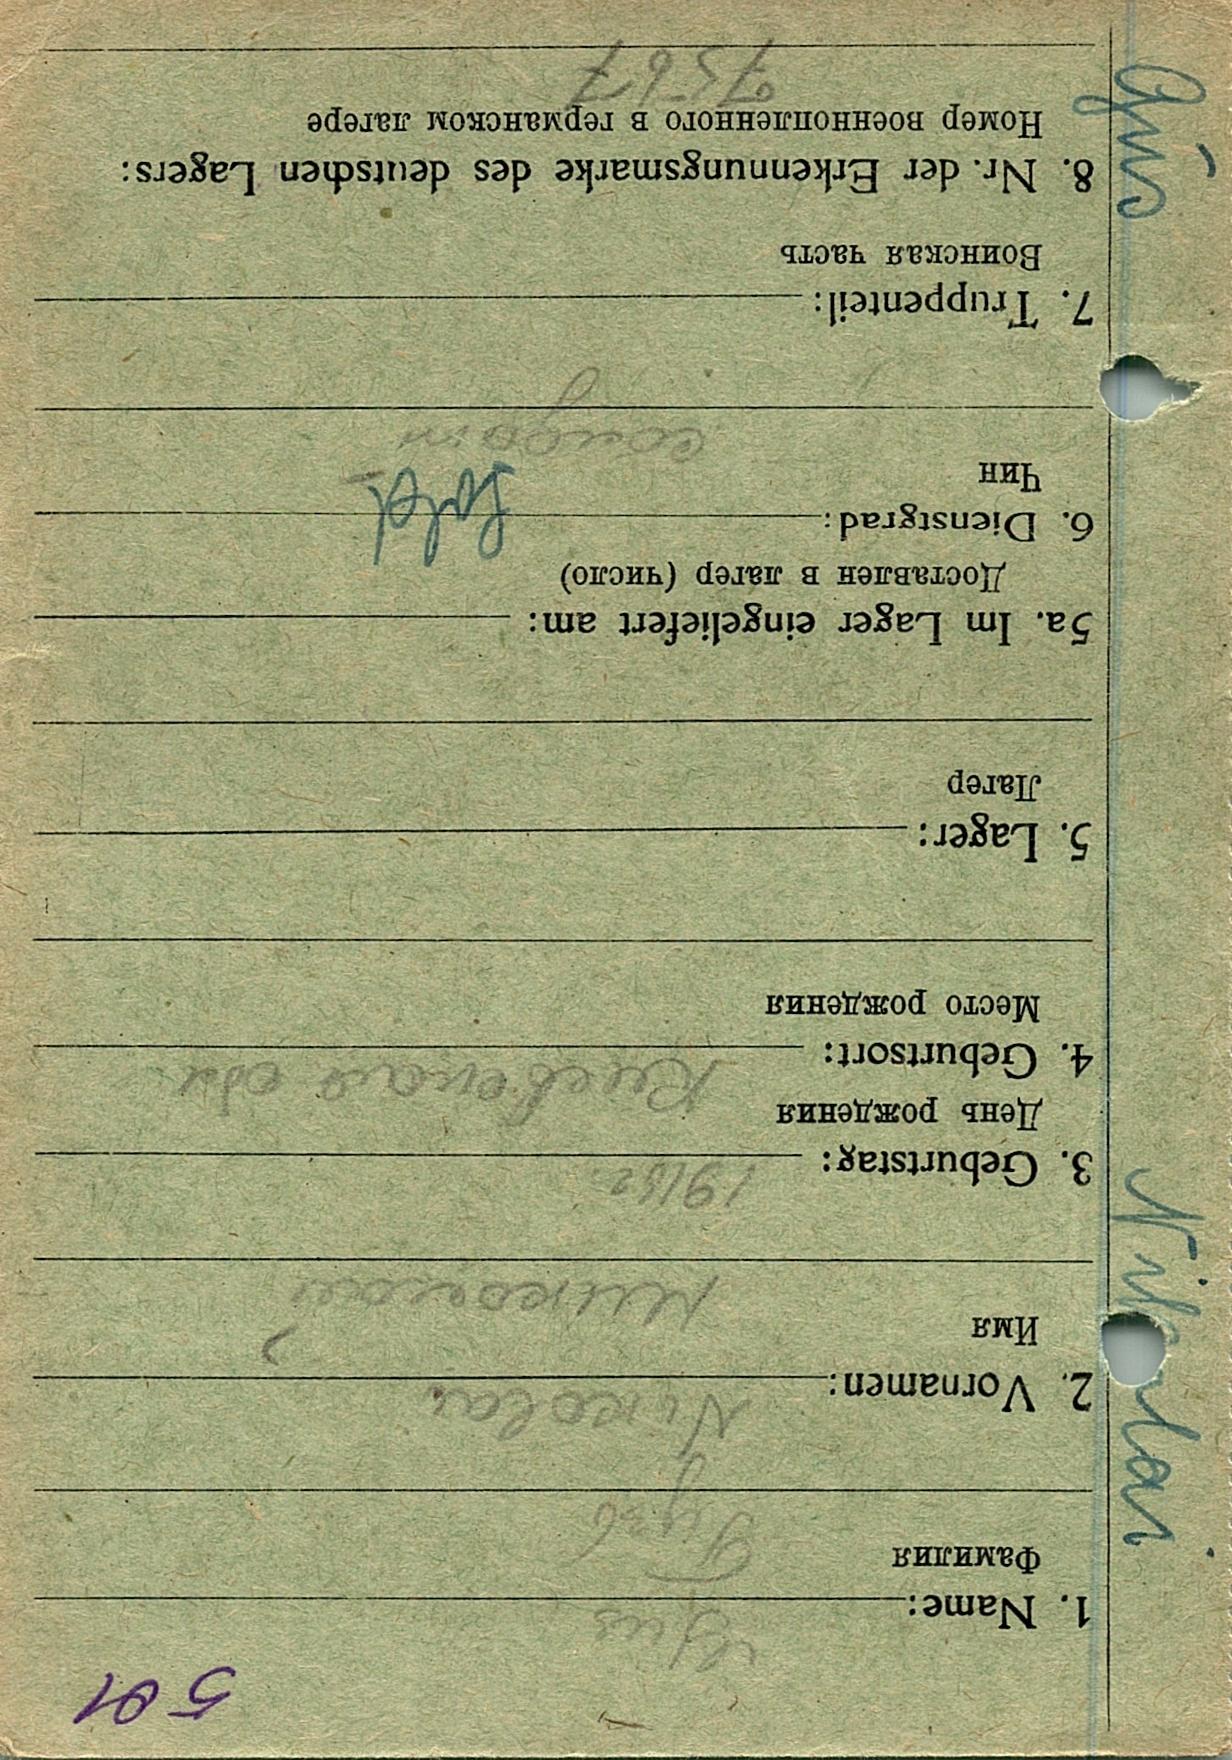 501
1. Name: Gus
Фамилия Гузь
2. Vornamen: Nikolai
Имя Николай
3. Geburtstag: 1918г.
День рождения
4. Geburtsort: Киевская обл
Место рождения
5. Lager:
Лагер
5a. Im Lager eingeliefert am:
Доставлен в лагер (число)
6. Dienstgrad: Sold.
Чин солдат
7. Truppenteil:
Воинская часть
8. Nr. der Erkennungsmarke des deutschen Lagers:
Номер военнопленного в германском лагере
7567
Gus
Nikolai